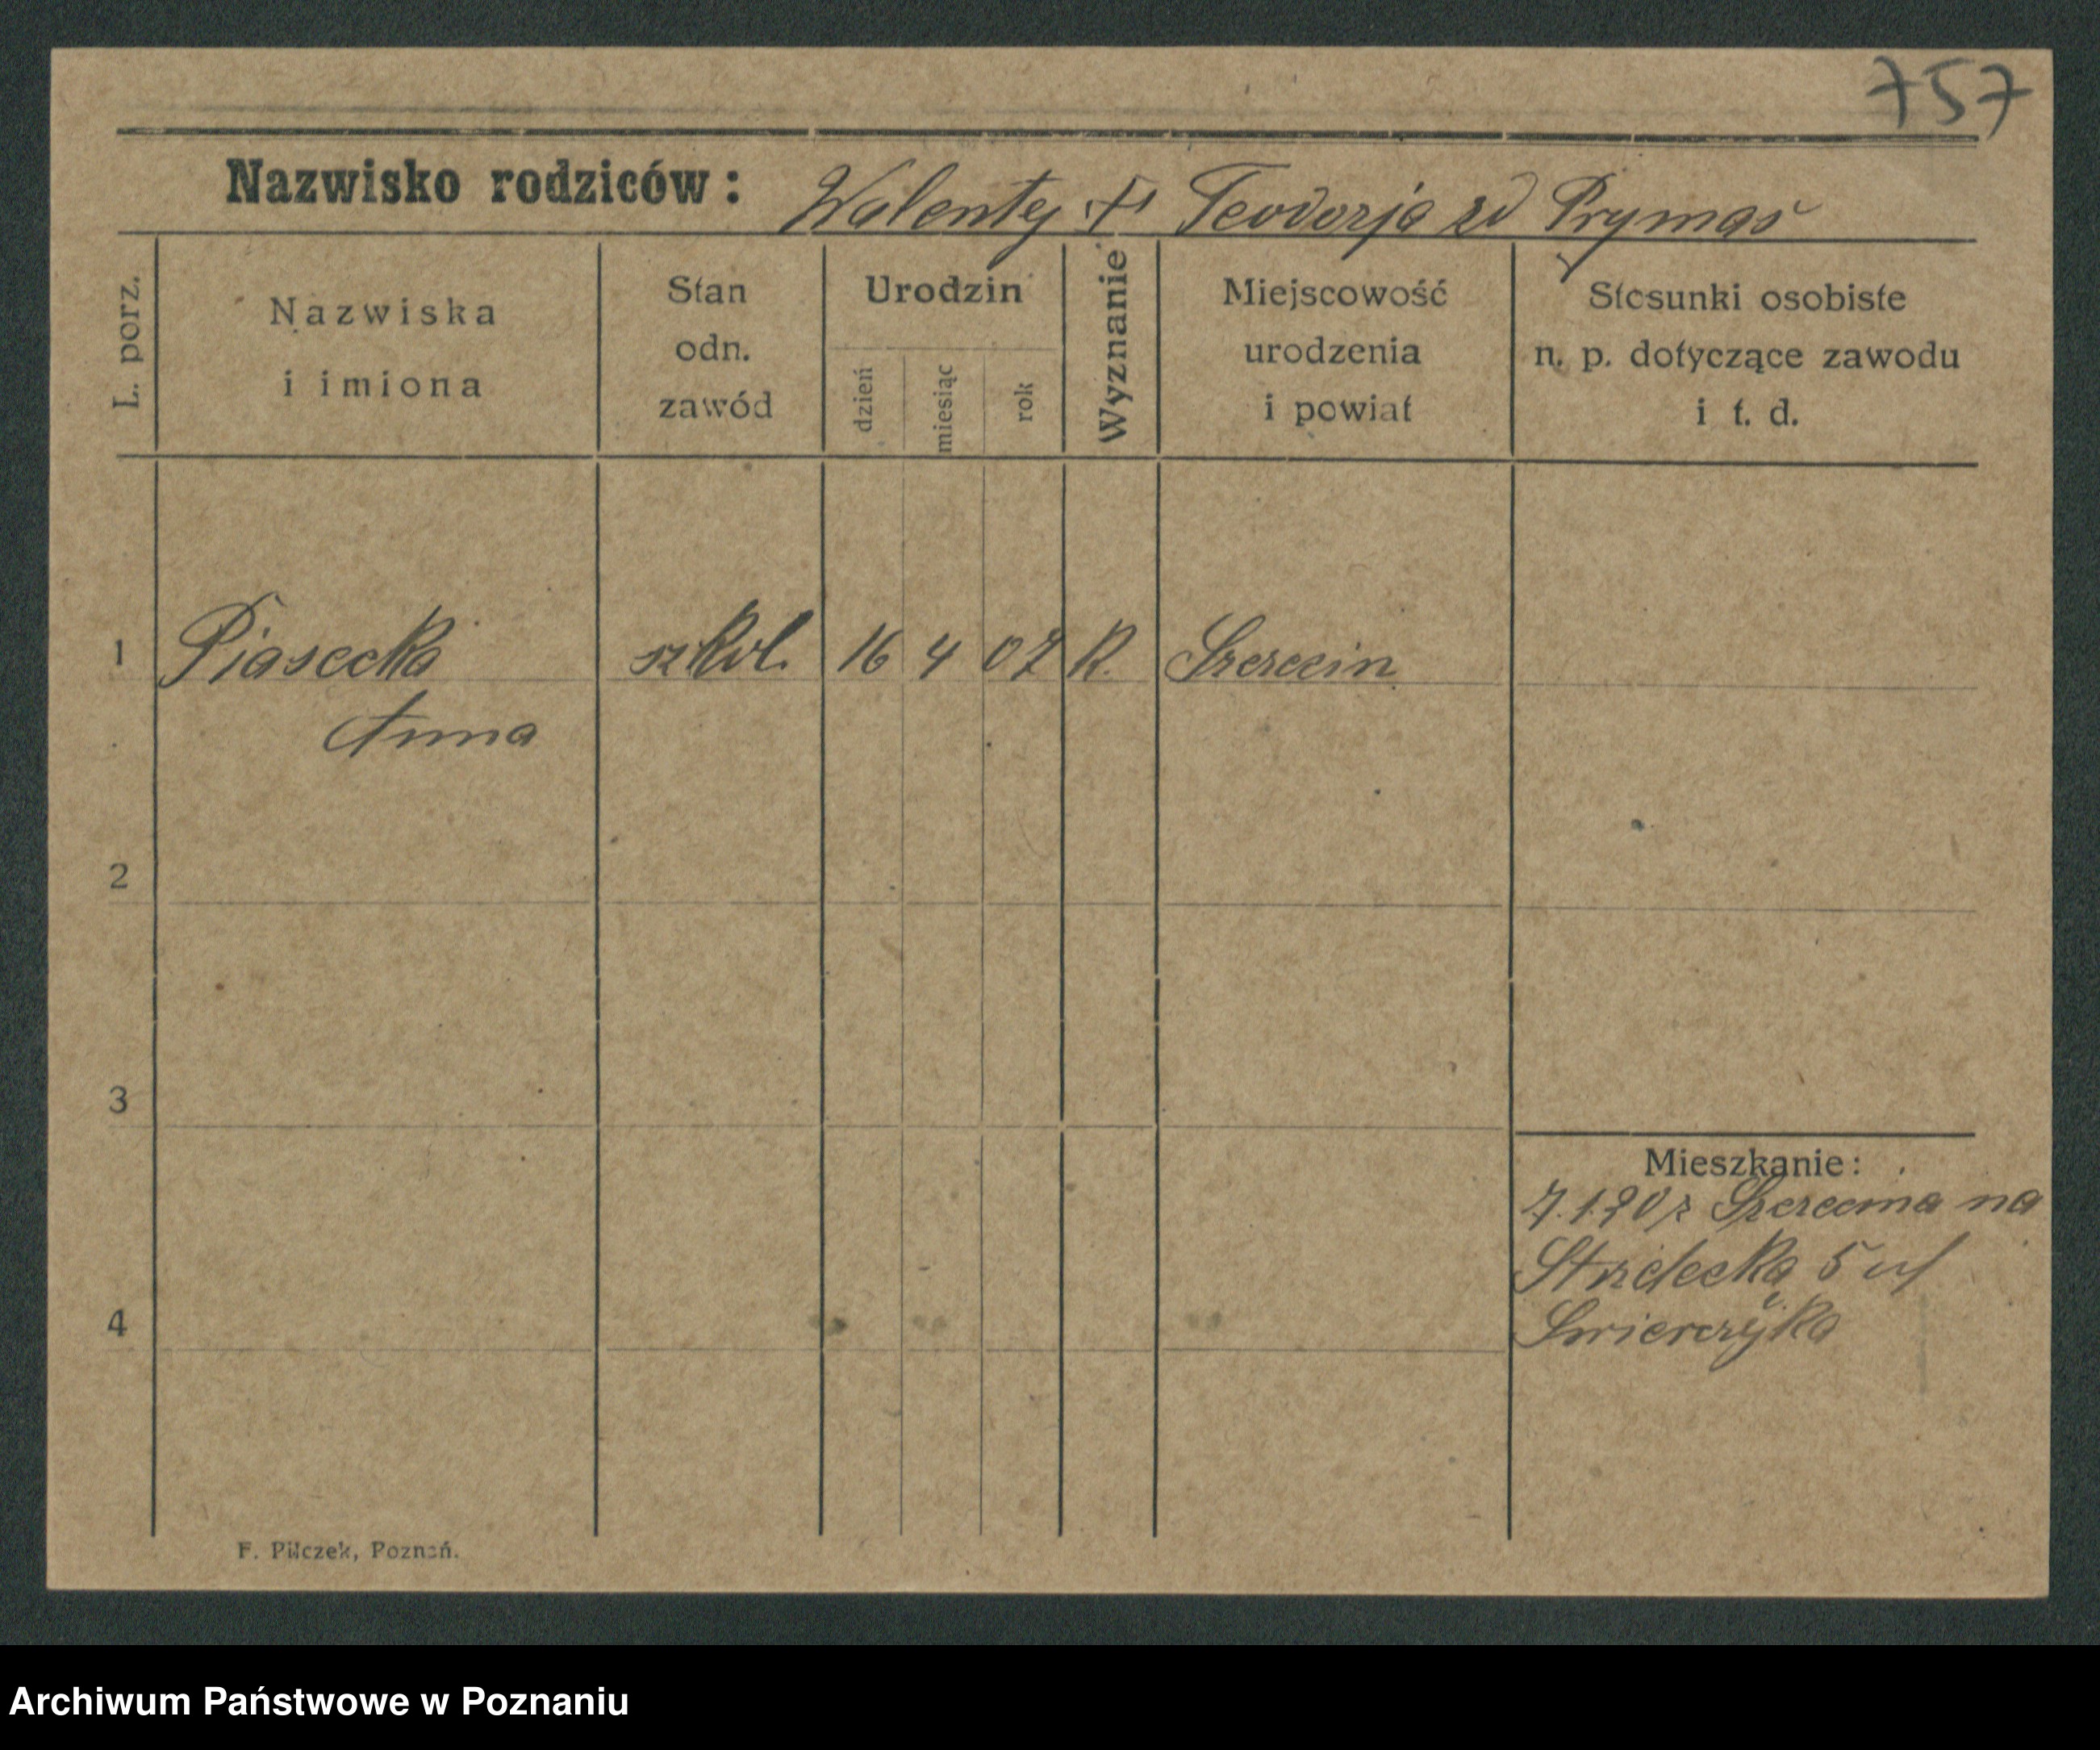 757
Nazwisko rodziców: Walenty + Teodorja zd Prymas
L. porz.
Nazwiska
i imiona
Stan
odn.
zawód
Urodzin
dzień
miesiąc
rok
Wyznanie
Miejscowość
urodzenia
i powiat
Stosunki osobiste
n. p. dotyczące zawodu
i t. d.
1 Piasecka szkol. 16 4 07 R. Szczecin
Anna
2
3
Mieszkanie:
7.1.20 z Szczecina na
Strzelecką 5 u/
4
Swierczyka
F. Pilczek, Poznań.
Archiwum Państwowe w Poznaniu